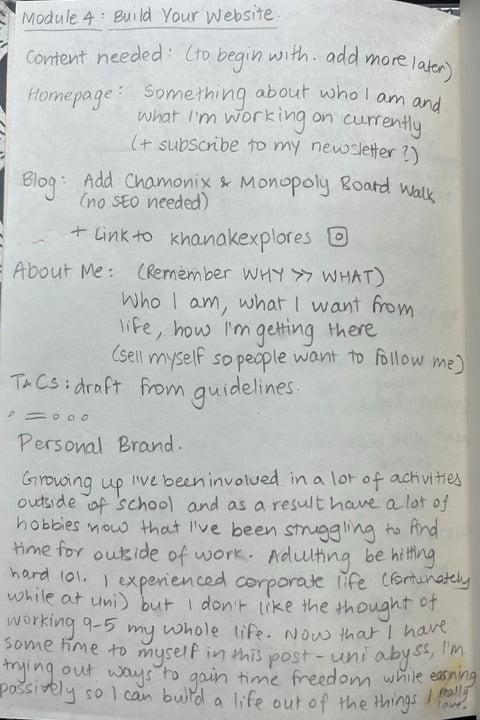 Module 4: Build Your Website.
Content needed: (to begin with. add more later)
Homepage: Something about who I am and
what I'm working on currently
(+ subscribe to my newsletter?)
Blog: Add Chamonix & Monopoly Board Walk
(no SEO needed)
+ Link to khanakexplores
About Me: (Remember WHY >> WHAT)
Who I am, what I want from
life, how I'm getting there
(sell myself so people want to follow me)
T&Cs: draft from guidelines.
Personal Brand.
Growing up I've been involved in a lot of activities
outside of school and as a result have a lot of
hobbies now that I've been struggling to find
time for outside of work. Adulting be hitting
hard 101. I experienced corporate life (fortunately
while at uni) but I don't like the thought of
working 9-5 my whole life. Now that I have
some time to myself in this post-uni abyss, I'm
trying out ways to gain time freedom while earning
passively so I can build a life out of the things I really
love.